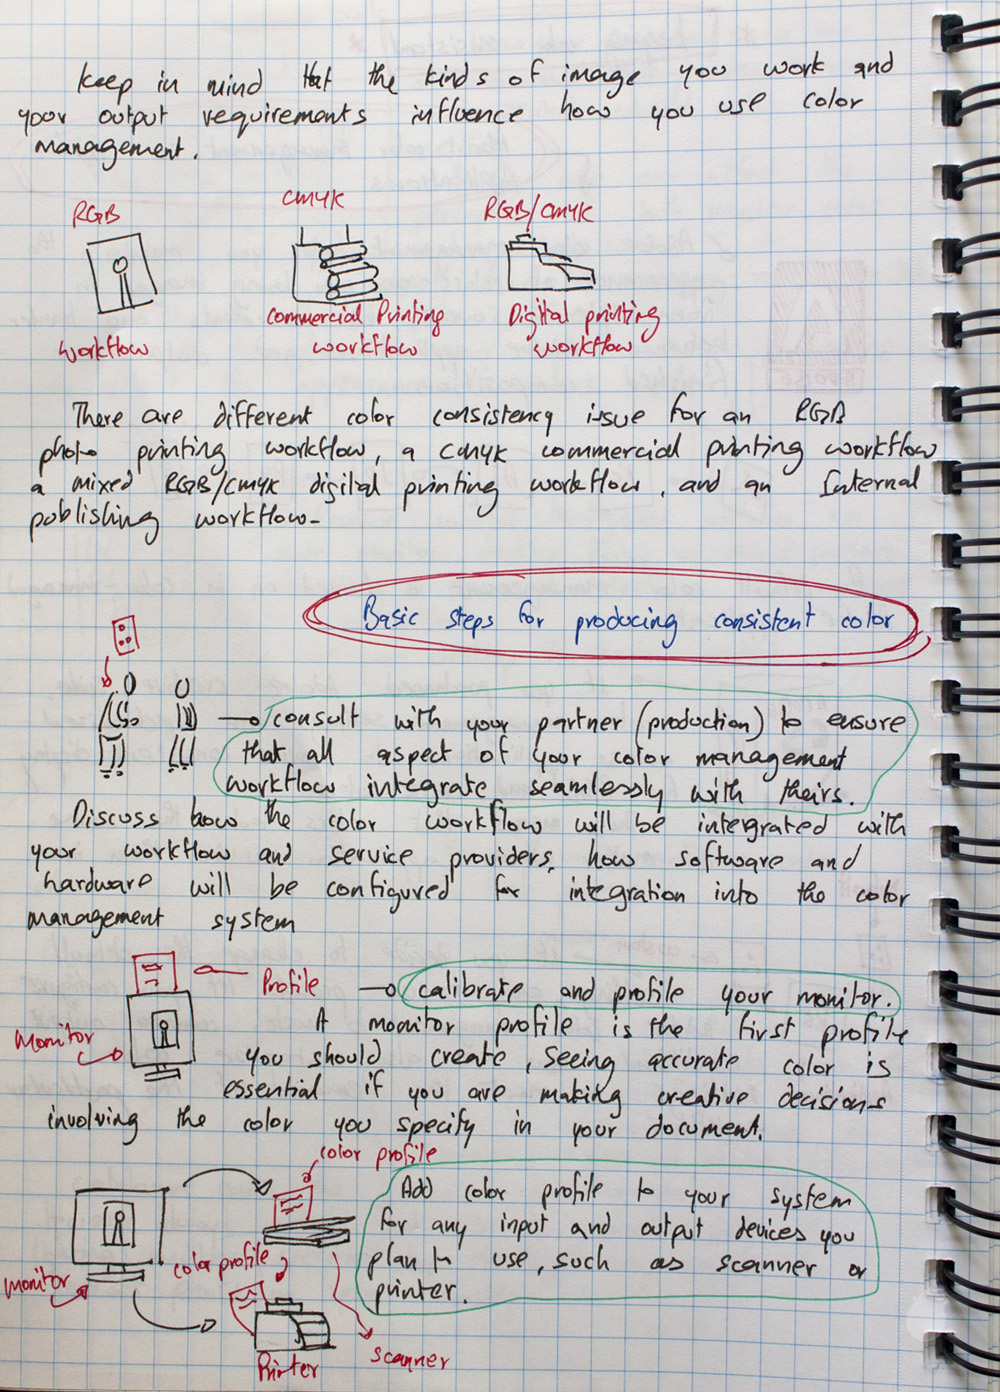 Keep in mind that the kinds of image you work and
your output requirements influence how you use color
management.
RGB
CMYK
RGB/CMYK
workflow
Commercial Printing
workflow
Digital printing
workflow
There are different color consistency issue for an RGB
photo printing workflow, a CMYK commercial printing workflow
a mixed RGB/CMYK digital printing workflow, and an Internal
publishing workflow-
Basic steps for producing consistent color
consult with your partner (production) to ensure
that all aspect of your color management
workflow integrate seamlessly with theirs.
Discuss how the color workflow will be intergrated with
your workflow and service providers, how software and
hardware will be configured for integration into the color
management system
Profile
Monitor
calibrate and profile your monitor.
A monitor profile is the first profile
you should create, seeing accurate color is
essential if you are making creative decisions
involving the color you specify in your document.
color profile
Monitor
color profile
Printer
scanner
Add color profile to your system
for any input and output devices you
plan to use, such as scanner or
printer.